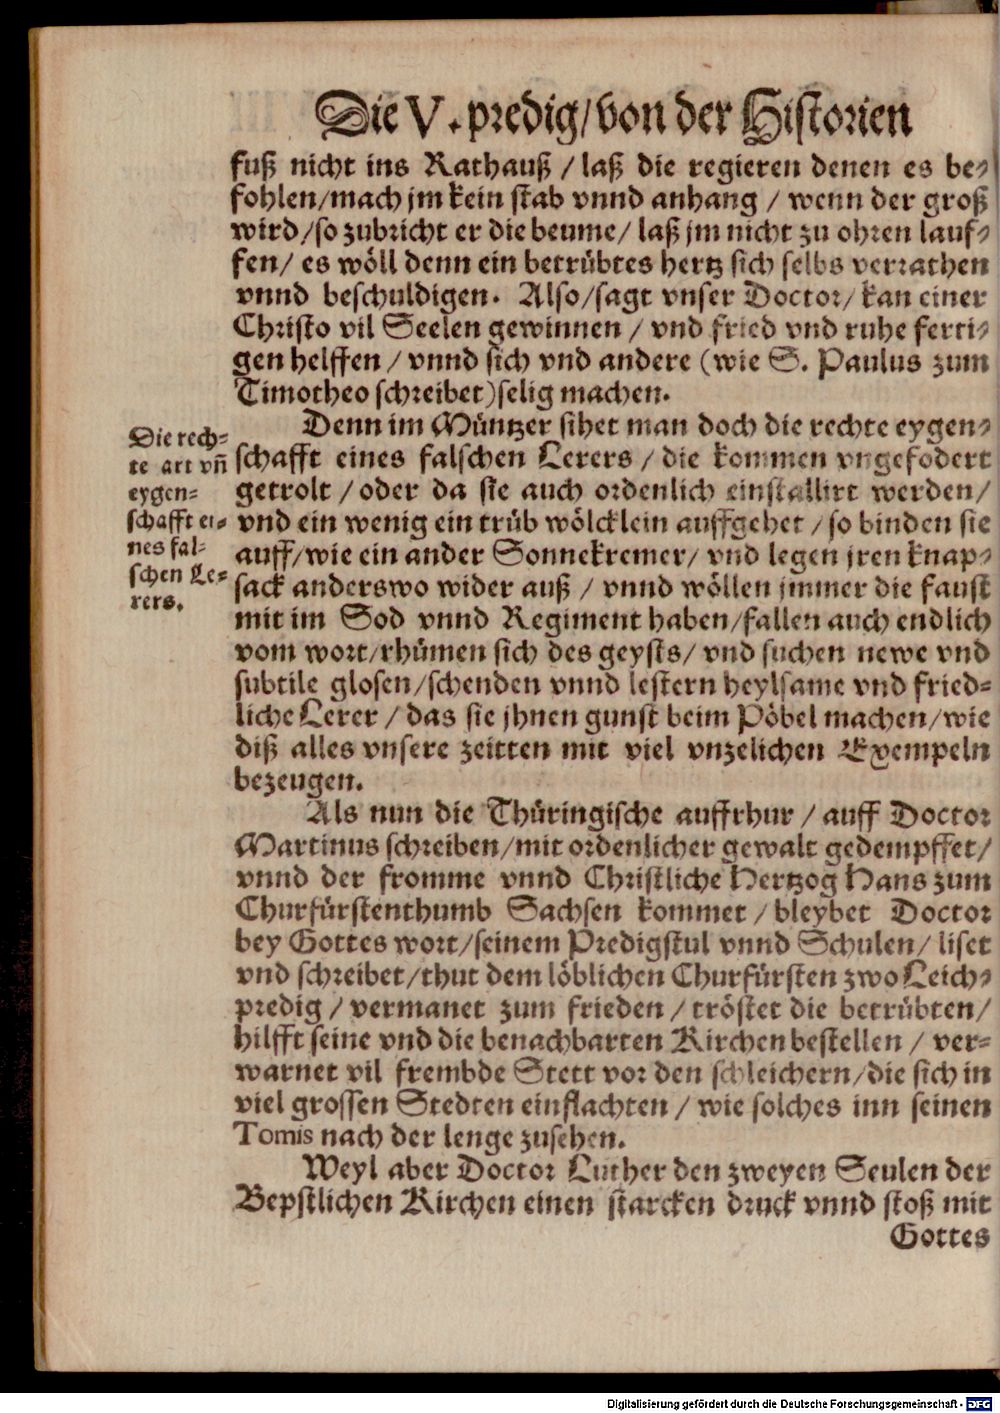 Die V. predig/von der Historien
fuß nicht ins Rathauß / laß die regieren denen es be-
fohlen/mach jm kein stab vnnd anhang / wenn der groß
wird/so zubricht er die beume/ laß jm nicht zu ohren lauf-
fen/ es wöll denn ein betrübtes hertz sich selbs verrathen
vnnd beschuldigen. Also/sagt vnser Doctor/ kan einer
Christo vil Seelen gewinnen / vnd fried vnd ruhe ferti-
gen helffen / vnnd sich vnd andere (wie S. Paulus zum
Timotheo schreibet)selig machen.
Denn im Müntzer sihet man doch die rechte eygen-
schafft eines falschen Lerers / die kommen vngefodert
getrolt / oder da sie auch ordenlich einstallirt werden/
vnd ein wenig ein trüb wölcklein auffgehet / so binden sie
auff/wie ein ander Sonnekremer/ vnd legen jren knap-
sack anderswo wider auß / vnnd wöllen jmmer die faust
mit im Sod vnnd Regiment haben/fallen auch endlich
vom wort/rhümen sich des geysts/ vnd suchen newe vnd
subtile glosen/schenden vnnd lestern heylsame vnd fried-
liche Lerer / das sie jhnen gunst beim Pöbel machen/wie
diß alles vnsere zeitten mit viel vnzelichen Exempeln
bezeugen.
Die rech-
te art vñ
eygen-
schafft ei-
nes fal-
schen Le-
rers.
Als nun die Thüringische auffrhur / auff Doctor
Martinus schreiben/mit ordenlicher gewalt gedempffet/
vnnd der fromme vnnd Christliche Hertzog Hans zum
Churfürstenthumb Sachsen kommet / bleybet Doctor
bey Gottes wort/seinem Predigstul vnnd Schulen/ liset
vnd schreibet/thut dem löblichen Churfürsten zwo Leich-
predig / vermanet zum frieden / tröstet die betrübten/
hilfft seine vnd die benachbarten Kirchen bestellen / ver-
warnet vil frembde Stett vor den schleichern/die sich in
viel grossen Stedten einflachten / wie solches inn seinen
Tomis nach der lenge zusehen.
Weyl aber Doctor Luther den zweyen Seulen der
Bepstlichen Kirchen einen starcken druck vnnd stoß mit
Gottes
Digitalisierung gefördert durch die Deutsche Forschungsgemeinschaft - DFG